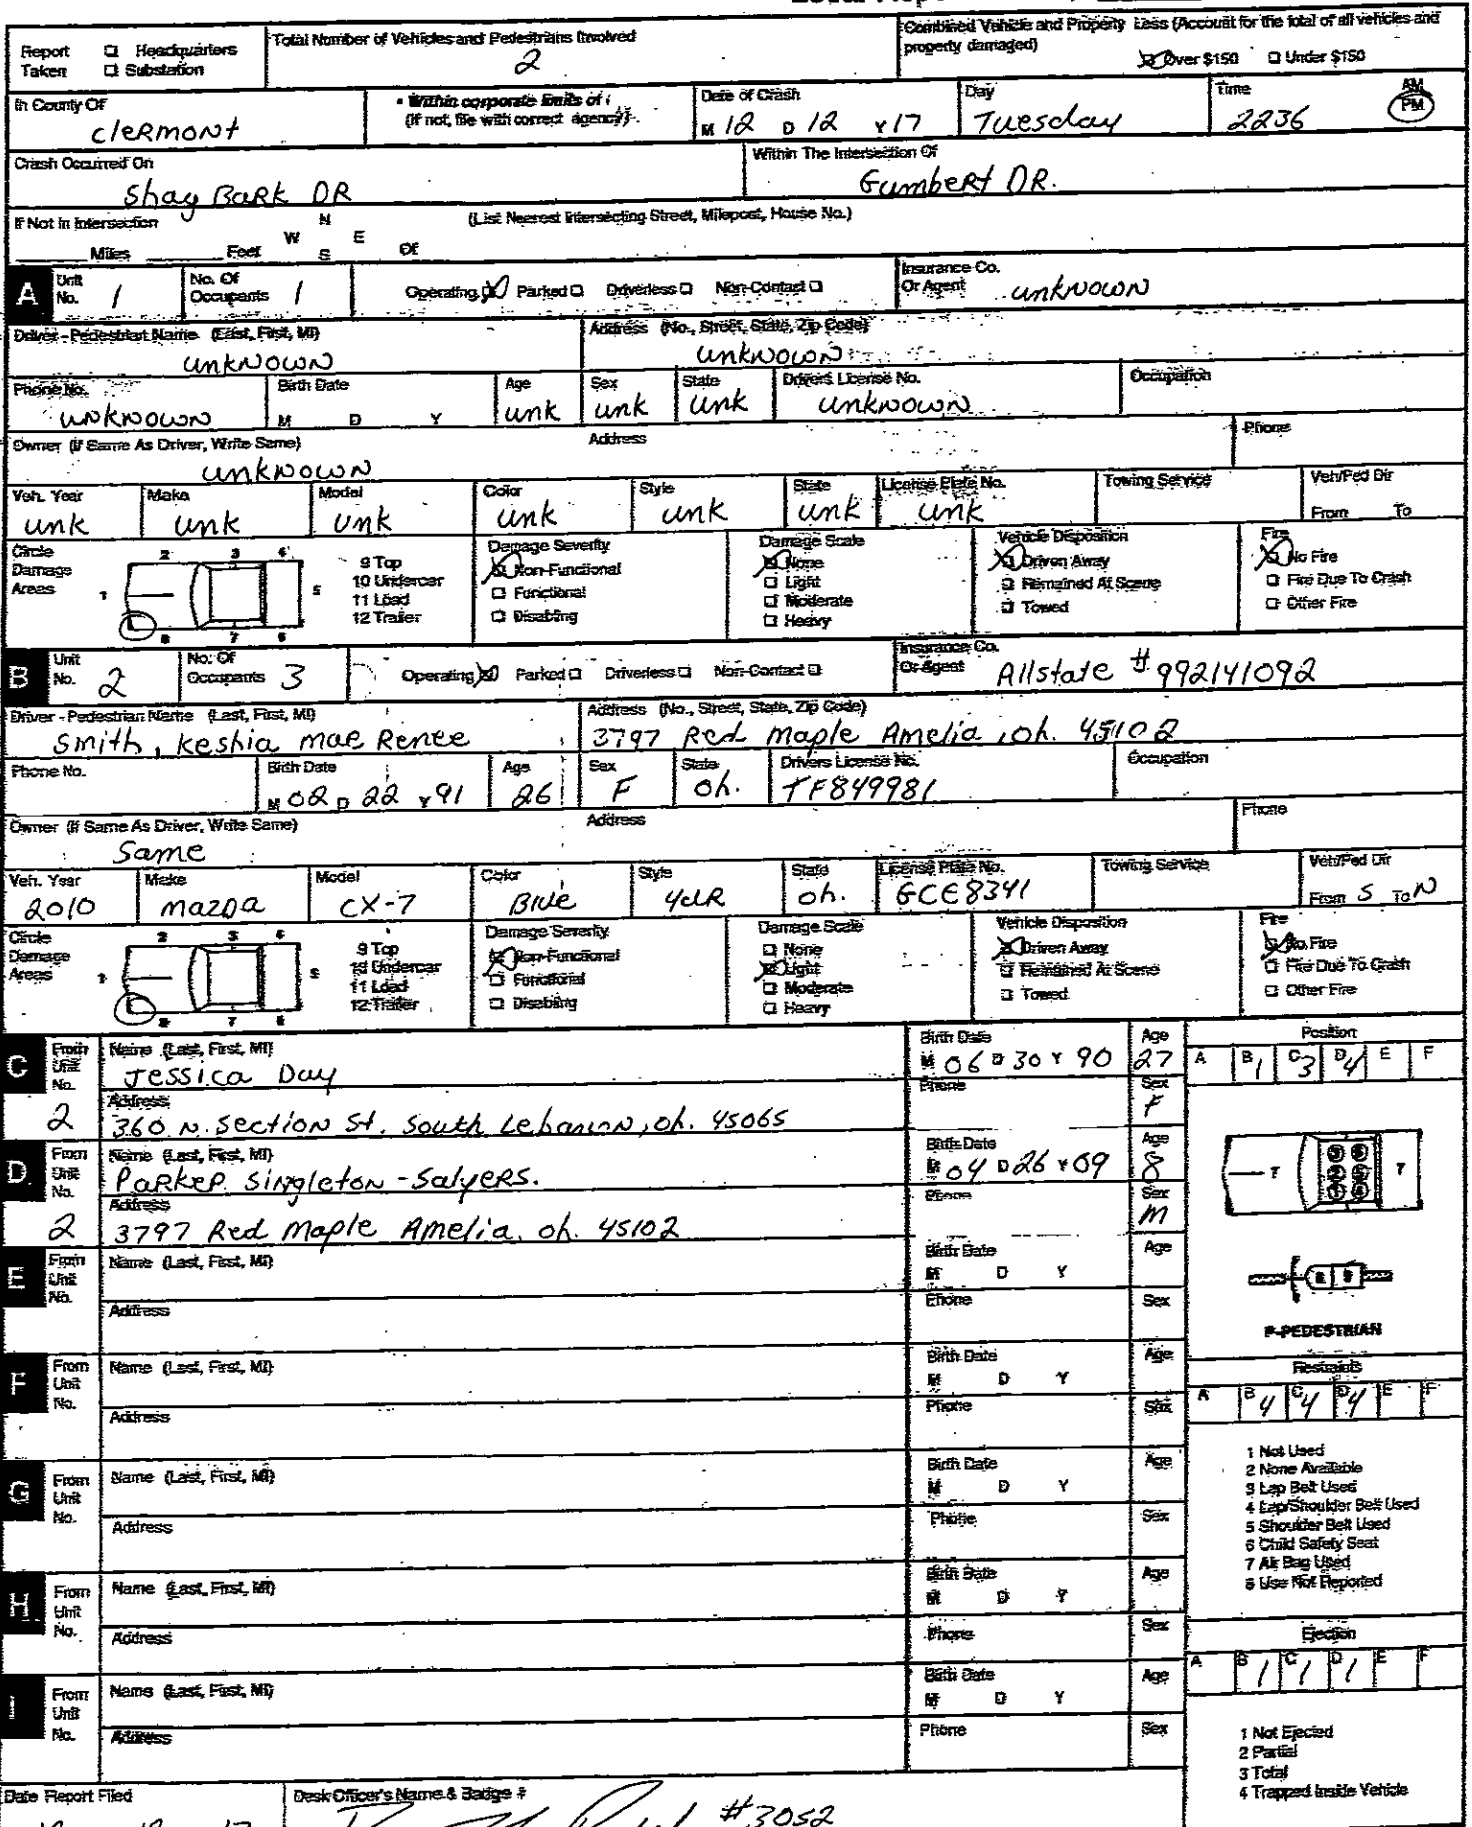 Report Taken ☐ Headquarters ☐ Substation
Total Number of Vehicles and Pedestrians Involved
2
Combined Vehicle and Property Loss (Account for the total of all vehicles and property damaged)
☒ Over $150 ☐ Under $150
In County Of
Clermont
• Within corporate limits of : (If not, file with correct agency)
Date of Crash
M 12 D 12 Y 17
Day
Tuesday
Time
2236
AM
PM
Crash Occurred On
Shag Bark DR
Within The Intersection Of
Gumbert DR.
If Not in Intersection
Miles Feet N W E S Of
(List Nearest Intersecting Street, Milepost, House No.)
A
Unit No. 1
No. Of Occupants 1
Operating ☒ Parked ☐ Driverless ☐ Non-Contact ☐
Insurance Co. Or Agent unknown
Driver - Pedestrian Name (Last, First, MI)
unknown
Address (No., Street, State, Zip Code)
unknown
Phone No.
unknown
Birth Date
M D Y
Age
unk
Sex
unk
State
unk
Drivers License No.
unknown
Occupation
Owner (If Same As Driver, Write Same)
unknown
Address
Phone
Veh. Year
unk
Make
unk
Model
unk
Color
unk
Style
unk
State
unk
License Plate No.
unk
Towing Service
Veh/Ped Dir
From To
Circle Damage Areas
1 2 3 4 5 6 7 8
9 Top
10 Undercar
11 Load
12 Trailer
Damage Severity
☒ Non-Functional
☐ Functional
☐ Disabling
Damage Scale
☒ None
☐ Light
☐ Moderate
☐ Heavy
Vehicle Disposition
☒ Driven Away
☐ Remained At Scene
☐ Towed
Fire
☒ No Fire
☐ Fire Due To Crash
☐ Other Fire
B
Unit No. 2
No. Of Occupants 3
Operating ☒ Parked ☐ Driverless ☐ Non-Contact ☐
Insurance Co. Or Agent Allstate #992141092
Driver - Pedestrian Name (Last, First, MI)
Smith, Keshia Mae Renee
Address (No., Street, State, Zip Code)
3797 Red Maple Amelia, Oh. 45102
Phone No.
Birth Date
M 02 D 22 Y 91
Age
26
Sex
F
State
Oh.
Drivers License No.
TF849981
Occupation
Owner (If Same As Driver, Write Same)
Same
Address
Phone
Veh. Year
2010
Make
Mazda
Model
CX-7
Color
Blue
Style
4dR
State
Oh.
License Plate No.
GCE8341
Towing Service
Veh/Ped Dir
From S To N
Circle Damage Areas
1 2 3 4 5 6 7 8
9 Top
10 Undercar
11 Load
12 Trailer
Damage Severity
☒ Non-Functional
☐ Functional
☐ Disabling
Damage Scale
☐ None
☒ Light
☐ Moderate
☐ Heavy
Vehicle Disposition
☒ Driven Away
☐ Remained At Scene
☐ Towed
Fire
☒ No Fire
☐ Fire Due To Crash
☐ Other Fire
C
From Unit No. 2
Name (Last, First, MI)
Jessica Day
Birth Date
M 06 D 30 Y 90
Age
27
Address
360 N. Section St. South Lebanon, Oh. 45065
Phone
Sex
F
D
From Unit No. 2
Name (Last, First, MI)
Parker Singleton-Salyers.
Birth Date
M 04 D 26 Y 09
Age
8
Address
3797 Red Maple Amelia, Oh. 45102
Phone
Sex
M
E
From Unit No.
Name (Last, First, MI)
Birth Date
M D Y
Age
Address
Phone
Sex
F
From Unit No.
Name (Last, First, MI)
Birth Date
M D Y
Age
Address
Phone
Sex
G
From Unit No.
Name (Last, First, MI)
Birth Date
M D Y
Age
Address
Phone
Sex
H
From Unit No.
Name (Last, First, MI)
Birth Date
M D Y
Age
Address
Phone
Sex
I
From Unit No.
Name (Last, First, MI)
Birth Date
M D Y
Age
Address
Phone
Sex
Position
A B 1 C 3 D 4 E F
7 7
P-PEDESTRIAN
Restraints
A B 4 C 4 D 4 E F
1 Not Used
2 None Available
3 Lap Belt Used
4 Lap/Shoulder Belt Used
5 Shoulder Belt Used
6 Child Safety Seat
7 Air Bag Used
8 Use Not Reported
Ejection
A B 1 C 1 D 1 E F
1 Not Ejected
2 Partial
3 Total
4 Trapped Inside Vehicle
Date Report Filed
Desk Officer's Name & Badge #
#3052